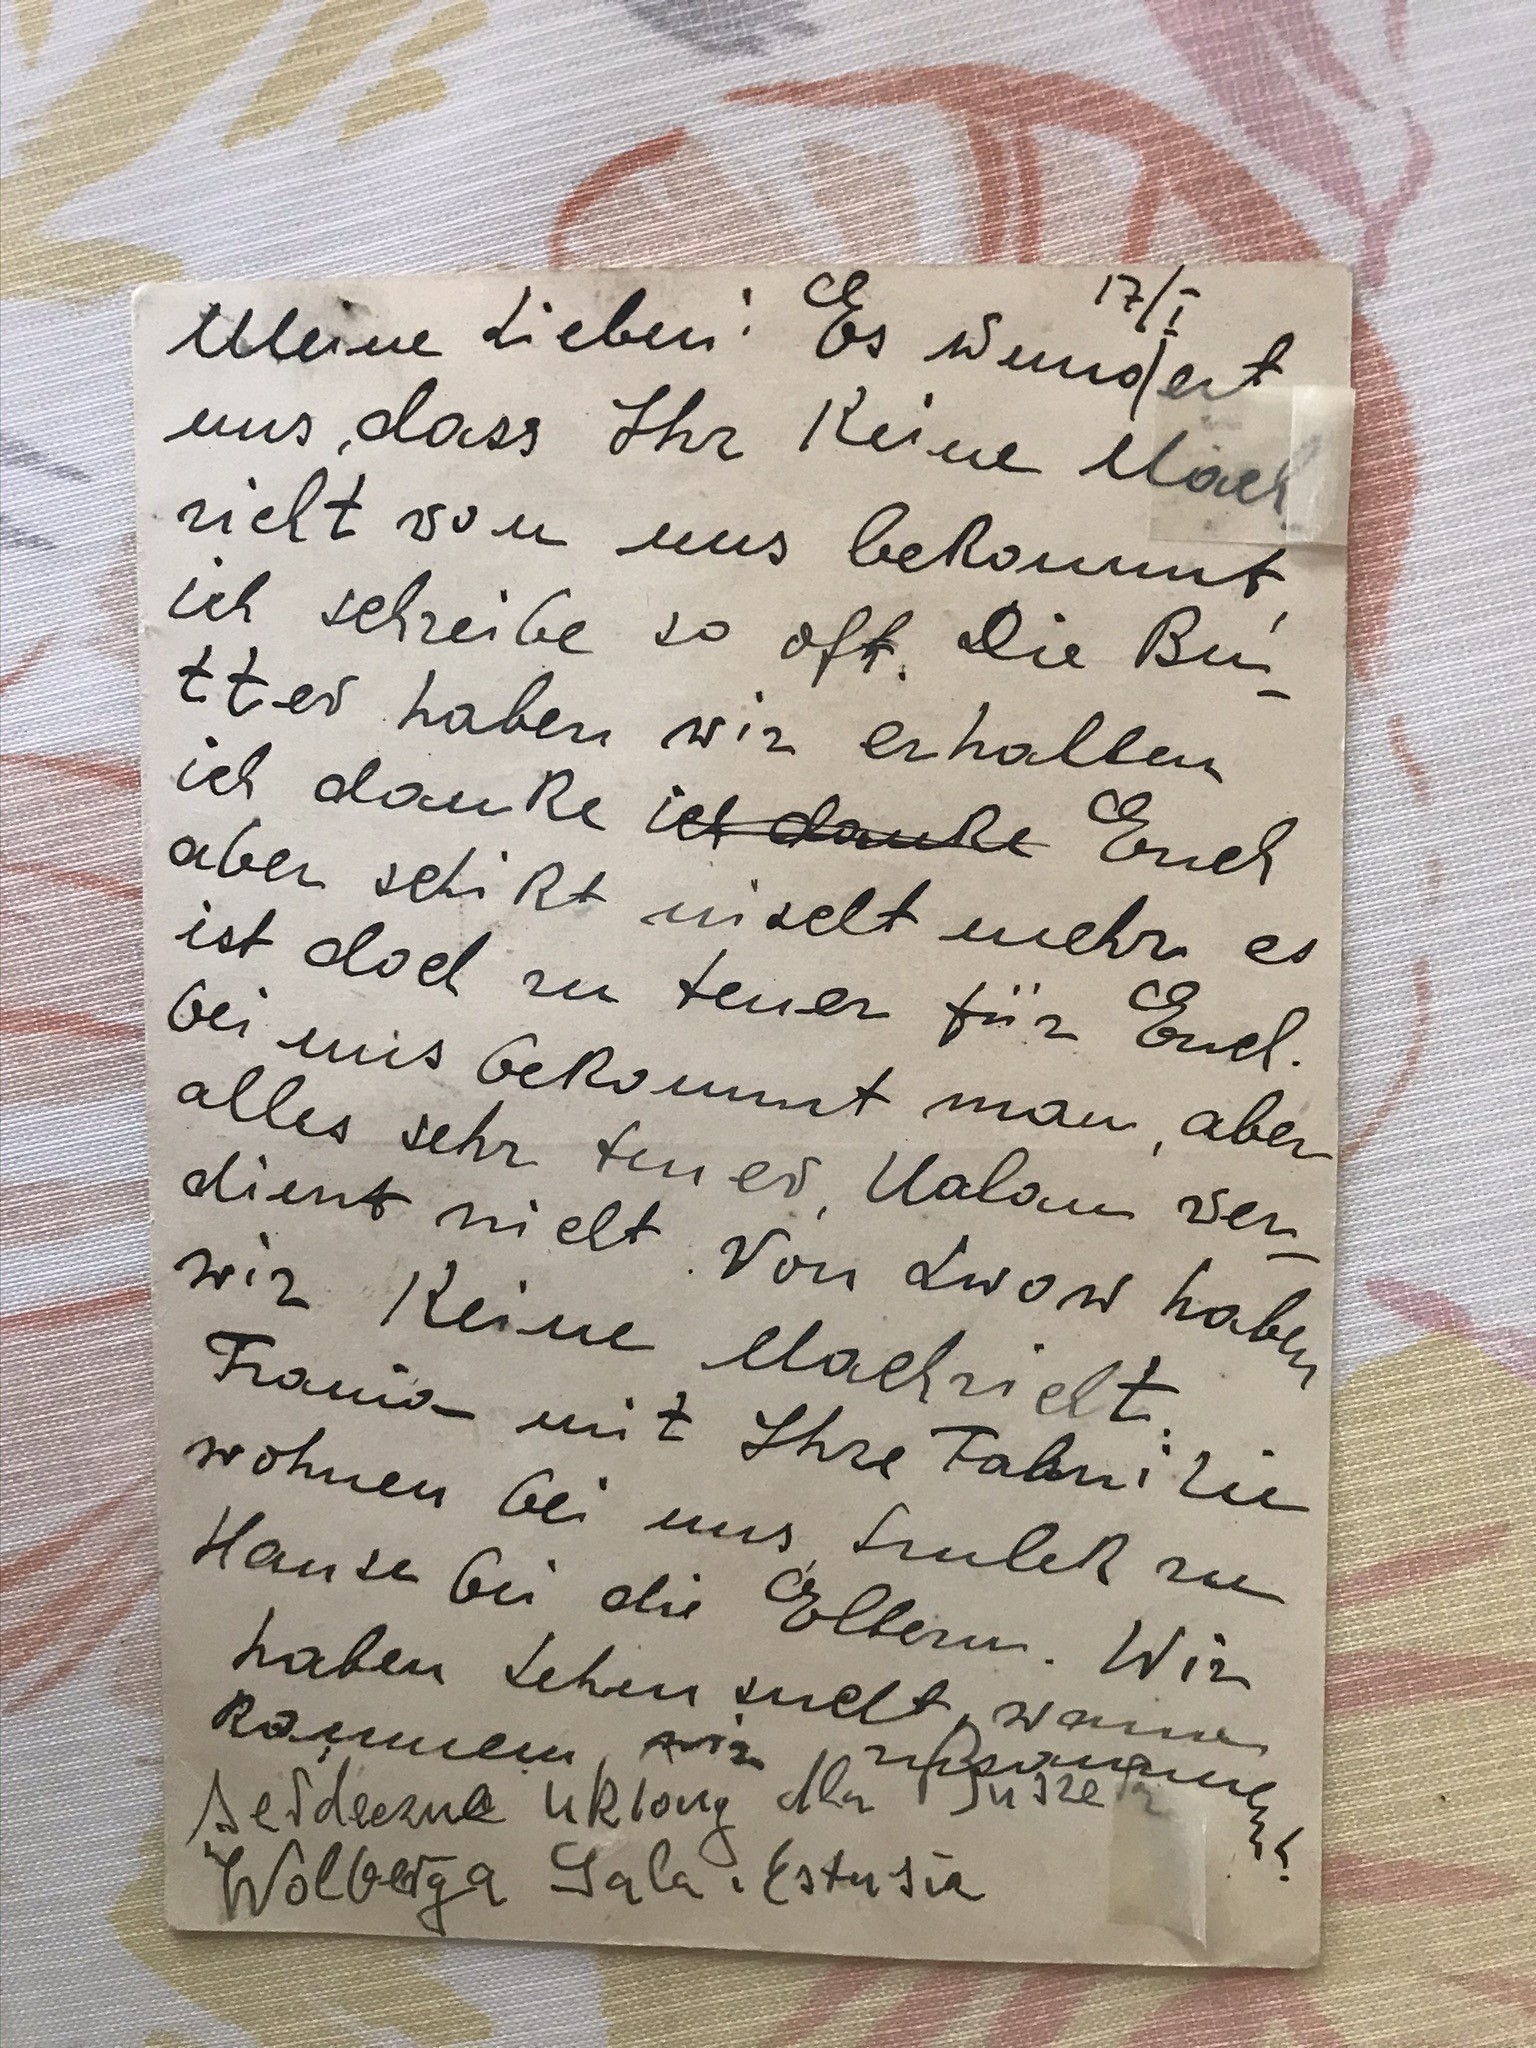 17/I
Meine Lieben! Es wundert
uns, dass Ihr keine Nach
richt von uns bekommt,
ich schreibe so oft. Die Bu-
tter haben wir erhalten
ich danke ich danke Euch
aber schikt nischt mehr es
ist doch zu teuer für Euch.
bei uns bekommt man, aber
alles sehr teuer, ver-
dient nicht. Von Lwow haben
wir keine Nachricht.
Frania mit Ihre Fabmilie
wohnen bei uns, Srulek zu
Hause bei die Eltern. Wir
haben sehensucht, wann
kommen wir zusammen!
serdeczne ukłony dla
Wolberga Sala i Estusia